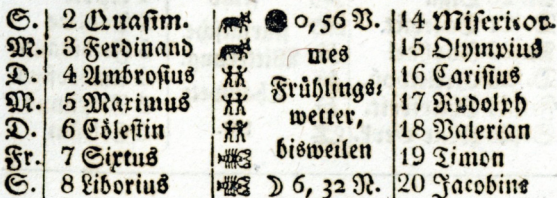 S. 2 Quasim. ● 0,56 V. 14 Misericor.
M. 3 Ferdinand mes 15 Olympius
D. 4 Ambrosius Frühlings⸗ 16 Carisius
M. 5 Maximus wetter, 17 Rudolph
D. 6 Cölestin bisweilen 18 Valerian
Fr. 7 Sixtus 19 Timon
S. 8 Liborius ☽ 6, 32 N. 20 Jacobine